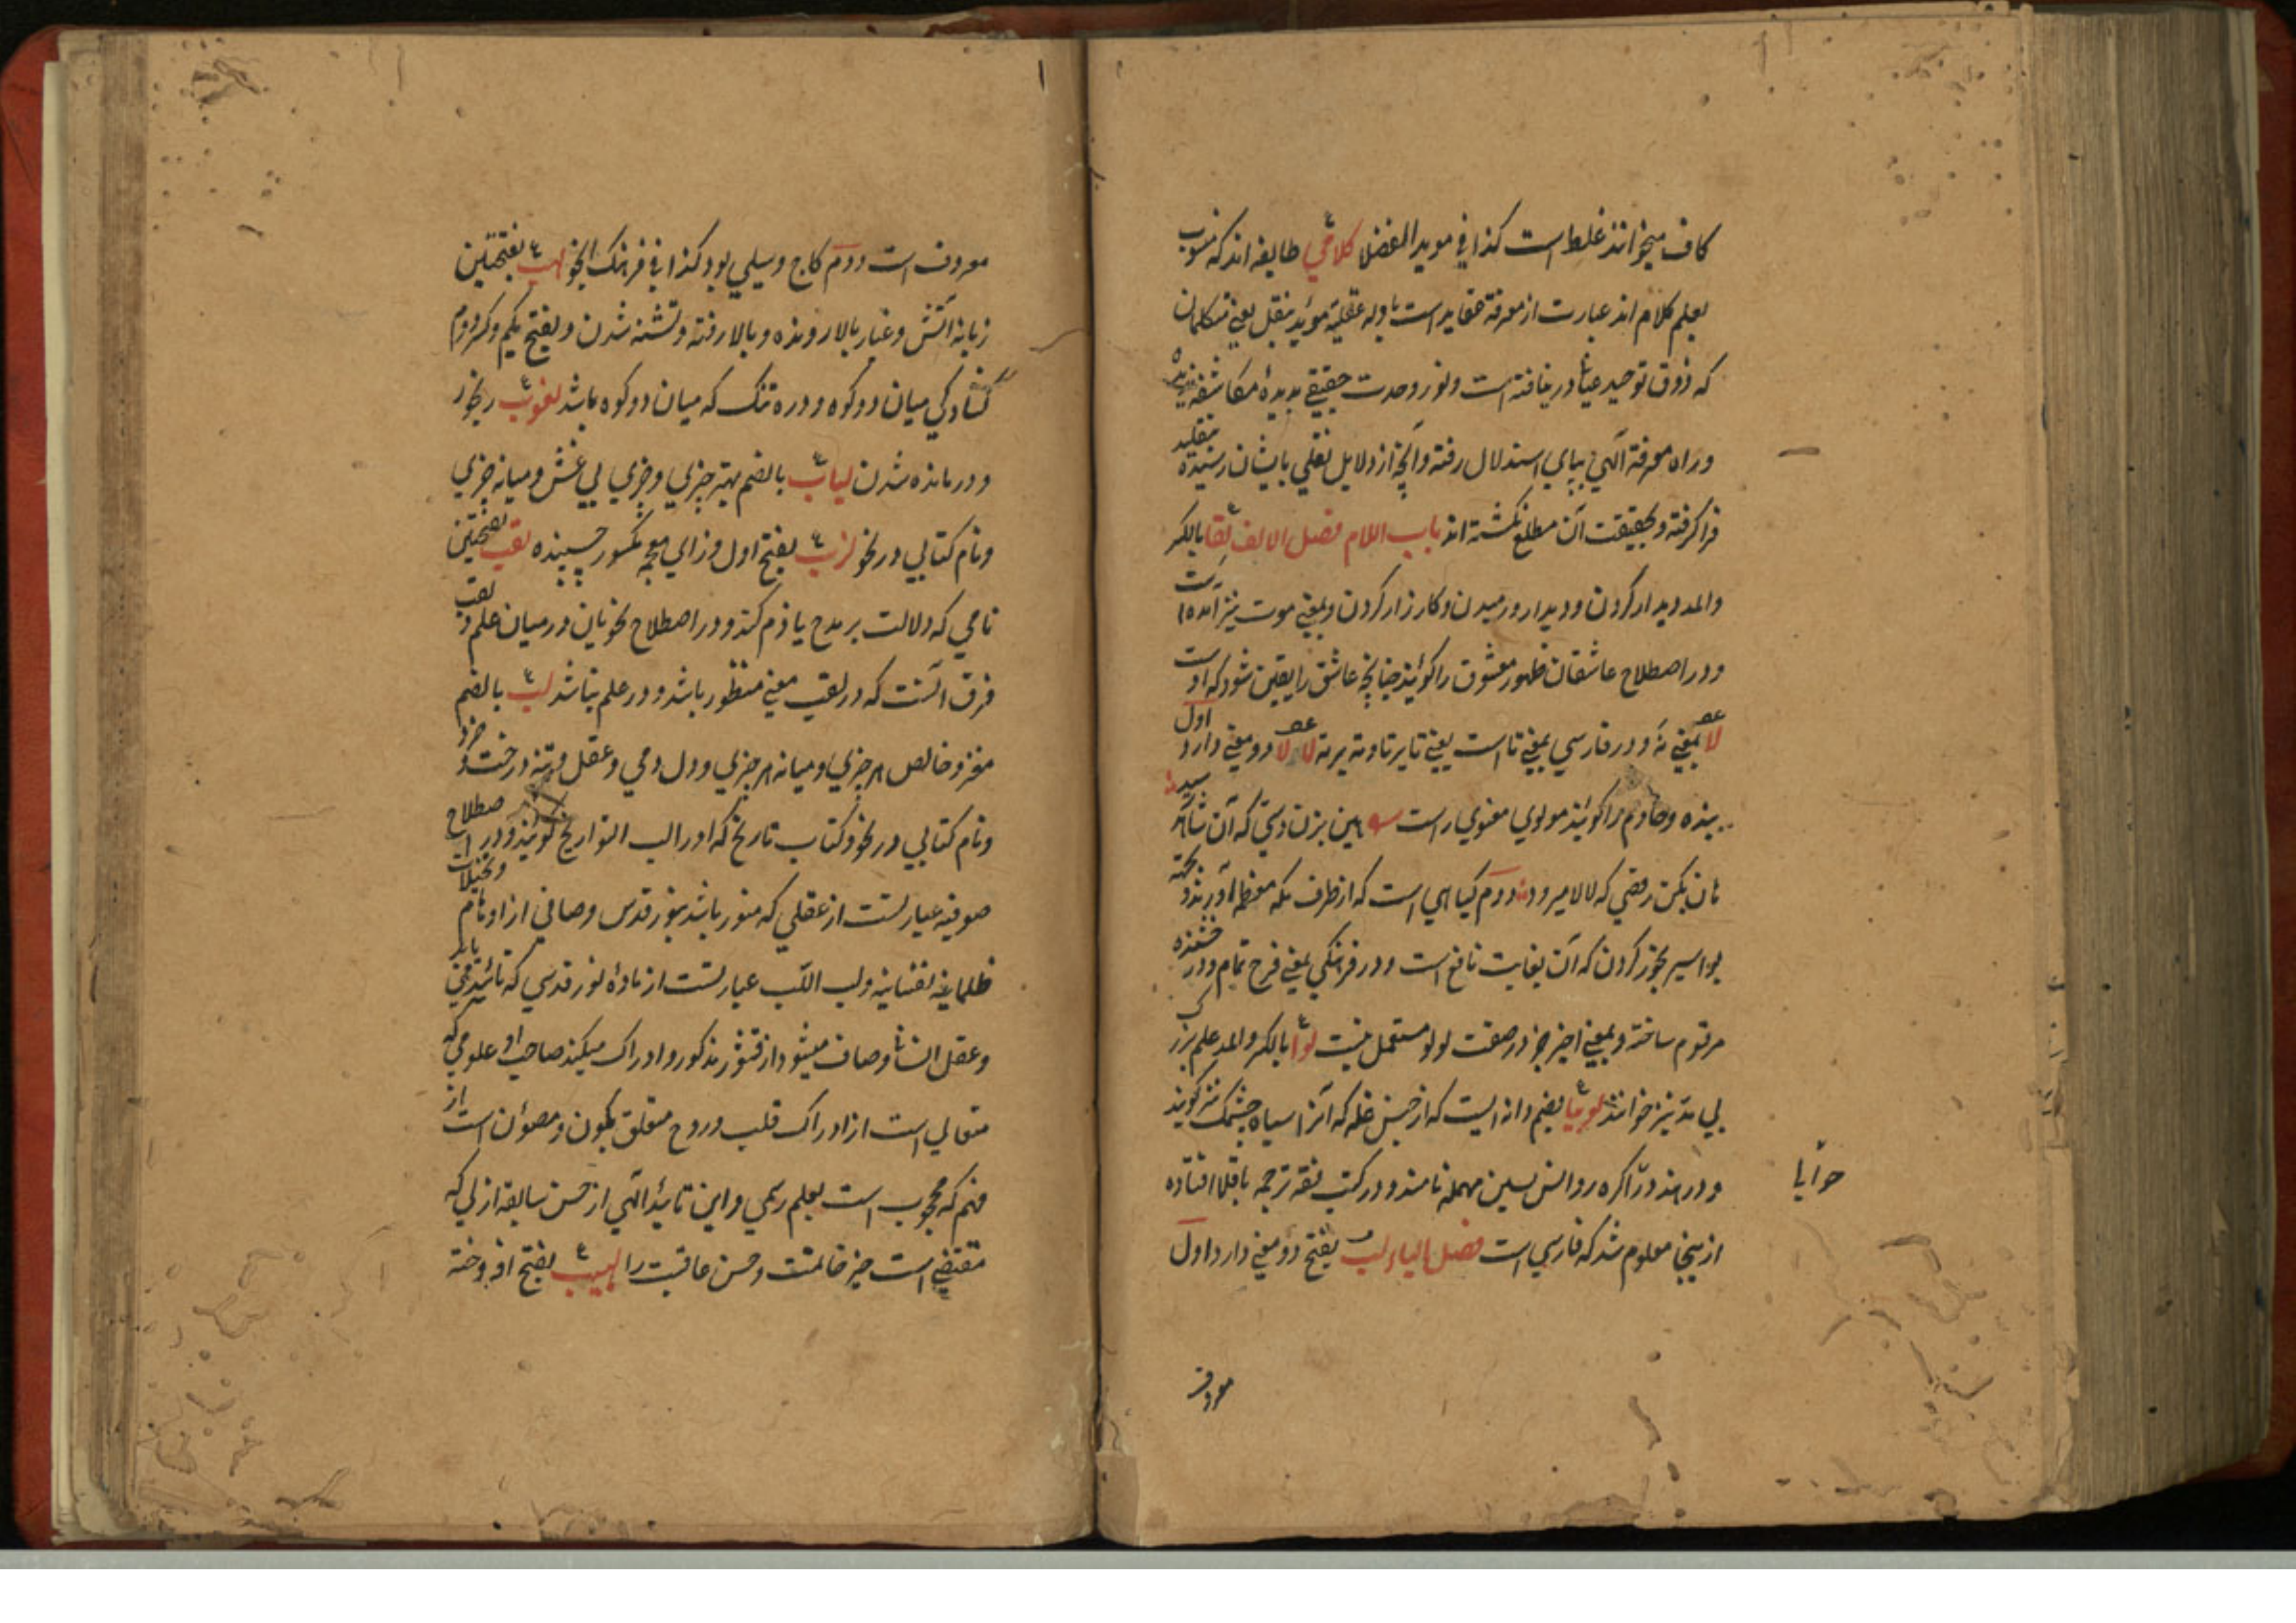 کاف میخوانند غلط است کذا فی موید الفضلا کلامی طایفه اند که منسوب
بعلم کلام اند عبارت از معرفة عقاید است بادله عقلیه موئد بنقل یعنی متکلمان
که ذوق توحید عیانا در نیافته است و نور وحدت حقیقی بدیدهٔ مکاشفه ندیده
و راه معرفة الهی بپای استدلال رفته و آنچه از دلایل نقلی بایشان رسیده بتقلید
فرا گرفته و بحقیقت آن مطلع نکشته اند باب اللام فصل الالف لقا بالکسر
والمد دیدار کردن و دیدار و رسیدن و کارزار کردن و بمعنی موت نیز آمده است
و در اصطلاح عاشقان ظهور معشوق را کویند چنانچه عاشق را یقین شود که او است
لا بمعنی نه و در فارسی بمعنی تا است یعنی تا بر تا و ته بر ته لا لا دو معنی دارد اول
بنده و خادم را کویند مولوی معنوی راست هین بزن دستی که آن شاهد رسید
هان بکن رقصی که لالا میرود دوم کیاهی است که از طرف مکه معظمه آورند و بجهة
بواسیر بخور کردن که آن بغایت نافع است و در فرهنکی بمعنی فرح تمام و درخشنده
مرقوم ساخته و بمعنی اخیر جز در صفت لولو مستعمل نیست لوا بالکسر والمد علم بزرکی
بی مد نیز خوانند لوبیا بضم دانه ایست که از جنس غله که آنرا سیاه چشمک نیز کویند
و در هند در آکره روانس بسین مهمله نامند و در کتب فقه ترجمه باقلا افتاده
حوایا
از ینجا معلوم شد که فارسی است فصل الباء لب بفتح دو معنی دارد اول
معروف
معروف است دوم کاج و سیلی بود کذا فی فرهنک لهب بفتحتین
زبانه آتش و غبار بالا رونده و بالا رفته و تشنه شدن و بفتح یکم و کسر دوم
کشادکی میان دو کوه و دره تنک که میان دو کوه باشد لغوب رنجور
و درمانده شدن لباب بالضم بهتر چیزی و چیزی بی غش و میانه چیزی
و نام کتابی در نحو لزب بفتح اول و زای معجمه مکسور چسپنده لقب بفتحتین
نامی که دلالت بر مدح یا ذم کند و در اصطلاح نحویان در میان علم و لقب
فرق آنست که در لقب معنی منظور باشد و در علم نباشد لب بالضم
مغز و خالص هر چیزی و میانه هر چیزی و دل و عقل و تنه درخت و خرد
و نام کتابی در نحو و کتاب تاریخ که او را لب التواریخ کویند و در اصطلاح
صوفیه عبارتست از عقلی که منور باشد بنور قدس و صافی از اوهام و تخیلات
ظلمانیه نفسانیه و لب اللب عبارتست از مادهٔ نور قدسی که تائید می یابد
و عقل انسانی صاف میشود از قشور مذکور و ادراک میکند صاحب او علومی که
متعالی است از ادراک قلب و روح متعلق بکون و مصئون است از
فهم که محجوب است بعلم رسمی و این تائید الهی از حسن سابقه ازلی که
مقتضی است خیر خاتمت و حسن عاقبت را لهیب بفتح افروخته